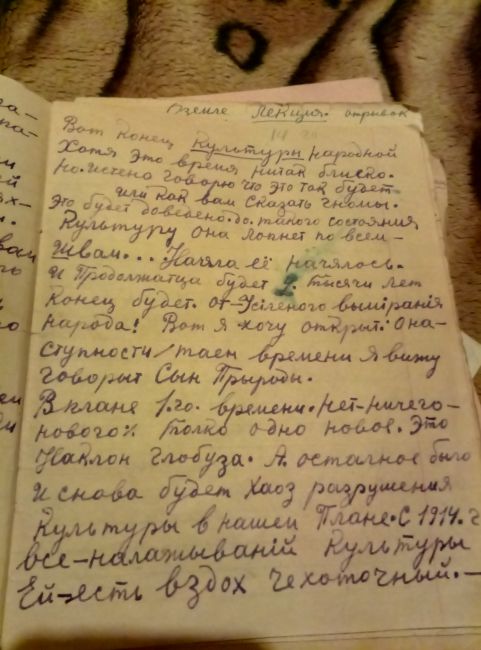 Вземле Лекция. отривок
Вот Конец Культуры народной
Хотя это время нитак близко.
Но. истено говорю что это так будет
или как вам сказать гномы.
Это будет доведено. до. такого состояния
Культуру она лопнет по всем-
швам... Начяла её начялось.
и Продолжатца будет 2. тысячи лет
Конец будет. от Усіленого выміранія
народа! Вот я хочу открыт: она-
ступности/таен времени Я вижу
говорыт Сын Прыроды.
В плане 1.го. времени. Нет-ничего-
нового% Толко одно новое. Это
Наклон глобуза. А. осталное было
и снова будет Хаоз разрушения
Культуры в нашей Плане. С 1914. г
все-налажываній Культуры
Ей-есть вздох чехоточный.-